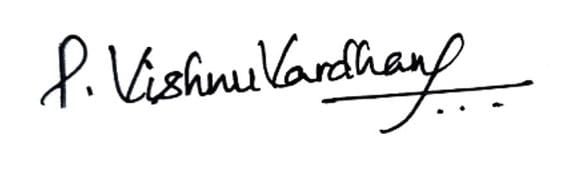 P. Vishnu Vardhan